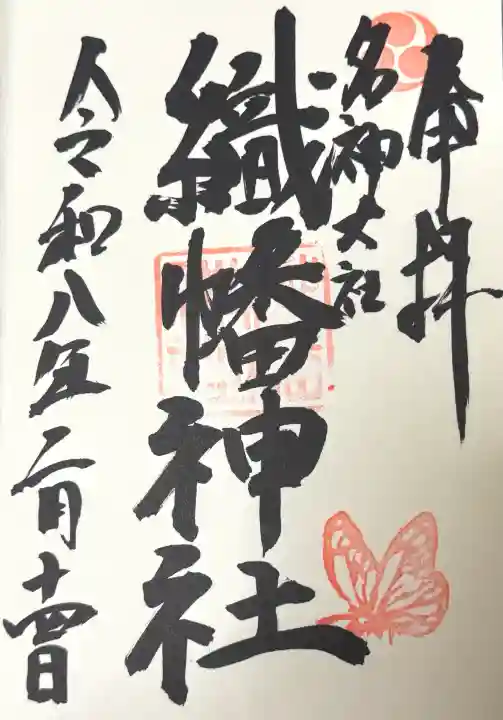 奉拝
名神大社
織幡神社
令和八年二月十四日